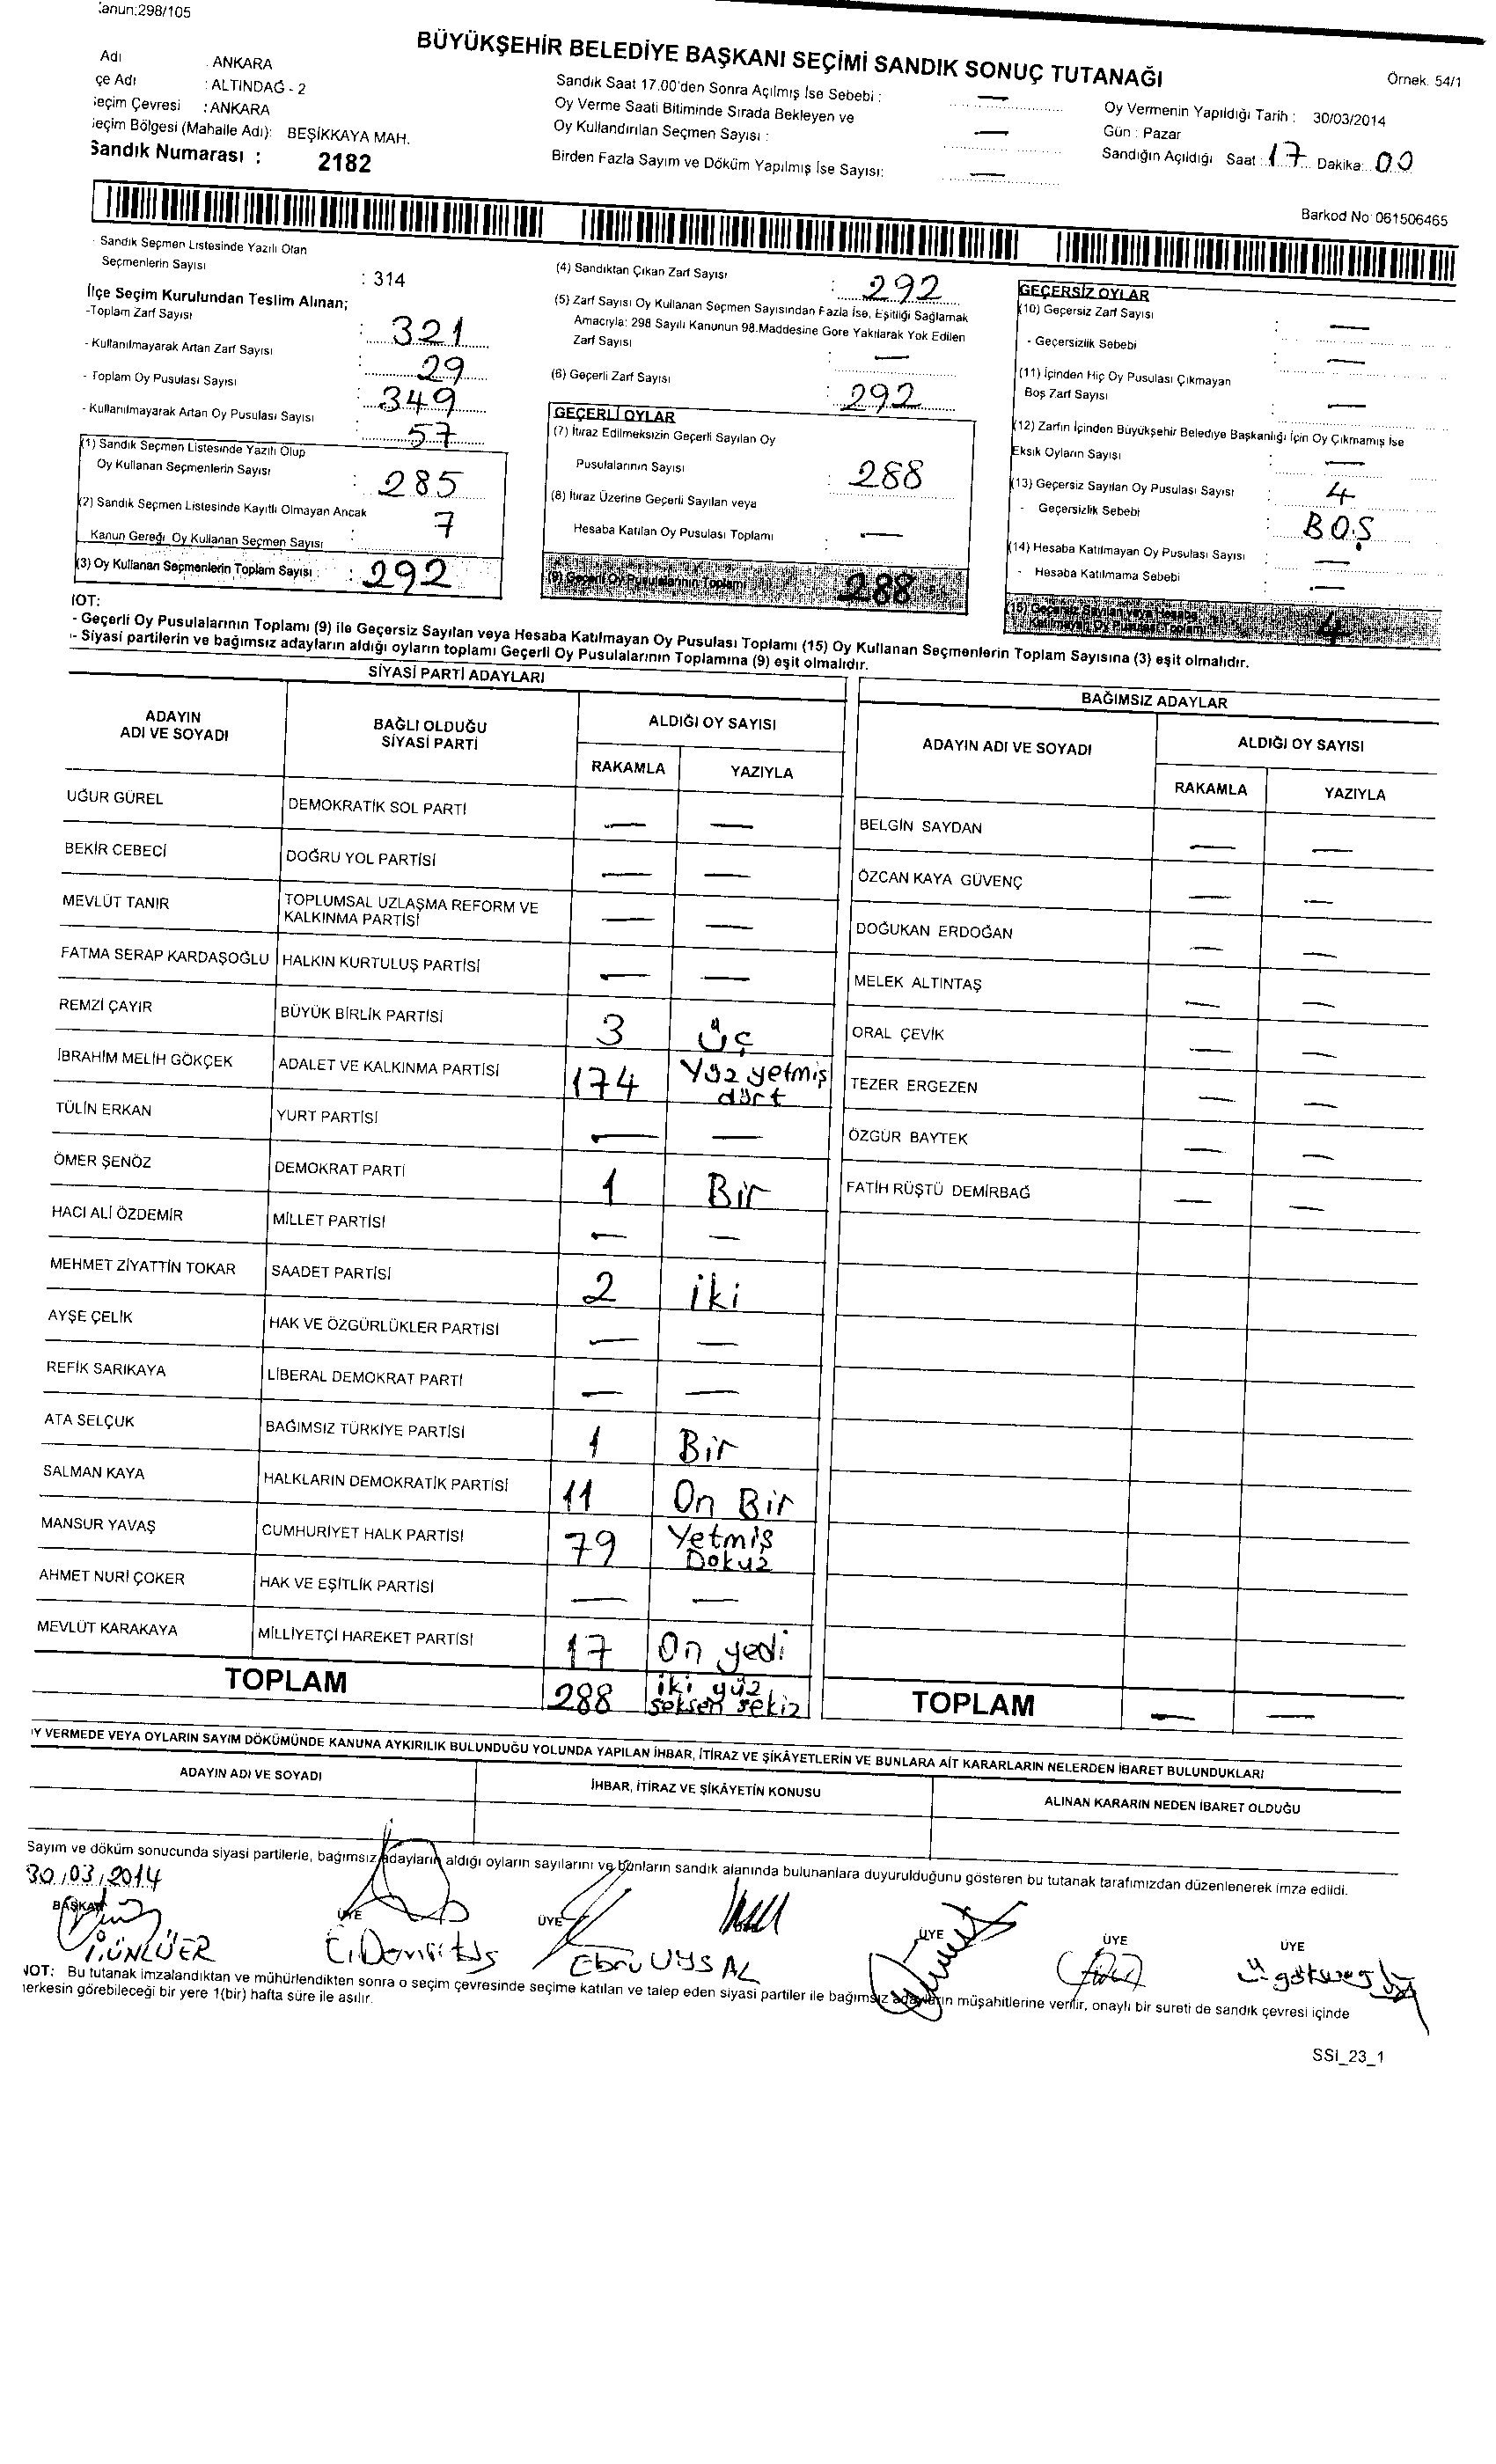 Kanun:298/105
BÜYÜKŞEHİR BELEDİYE BAŞKANI SEÇİMİ SANDIK SONUÇ TUTANAĞI
Örnek. 54/1
Adı : ANKARA
çe Adı : ALTINDAĞ - 2
eçim Çevresi : ANKARA
eçim Bölgesi (Mahalle Adı): BEŞİKKAYA MAH.
Sandık Numarası : 2182
Sandık Saat 17.00'den Sonra Açılmış İse Sebebi : —
Oy Verme Saati Bitiminde Sırada Bekleyen ve
Oy Kullandırılan Seçmen Sayısı : —
Birden Fazla Sayım ve Döküm Yapılmış İse Sayısı: —
Oy Vermenin Yapıldığı Tarih : 30/03/2014
Gün : Pazar
Sandığın Açıldığı Saat : 17 Dakika: 00
Barkod No 061506465
Sandık Seçmen Listesinde Yazılı Olan
Seçmenlerin Sayısı : 314
İlçe Seçim Kurulundan Teslim Alınan;
-Toplam Zarf Sayısı : 321
- Kullanılmayarak Artan Zarf Sayısı : 29
- Toplam Oy Pusulası Sayısı : 349
- Kullanılmayarak Artan Oy Pusulası Sayısı : 57
(1) Sandık Seçmen Listesinde Yazılı Olup
Oy Kullanan Seçmenlerin Sayısı : 285
(2) Sandık Seçmen Listesinde Kayıtlı Olmayan Ancak
Kanun Gereği Oy Kullanan Seçmen Sayısı : 7
(3) Oy Kullanan Seçmenlerin Toplam Sayısı : 292
(4) Sandıktan Çıkan Zarf Sayısı : 292
(5) Zarf Sayısı Oy Kullanan Seçmen Sayısından Fazla İse, Eşitliği Sağlamak
Amacıyla: 298 Sayılı Kanunun 98.Maddesine Göre Yakılarak Yok Edilen
Zarf Sayısı : —
(6) Geçerli Zarf Sayısı : 292
GEÇERLİ OYLAR
(7) İtiraz Edilmeksizin Geçerli Sayılan Oy
Pusulalarının Sayısı : 288
(8) İtiraz Üzerine Geçerli Sayılan veya
Hesaba Katılan Oy Pusulası Toplamı : —
(9) Geçerli Oy Pusulalarının Toplamı 288
GEÇERSİZ OYLAR
(10) Geçersiz Zarf Sayısı : —
- Geçersizlik Sebebi : —
(11) İçinden Hiç Oy Pusulası Çıkmayan
Boş Zarf Sayısı : —
(12) Zarfın İçinden Büyükşehir Belediye Başkanlığı İçin Oy Çıkmamış İse
Eksik Oyların Sayısı : —
(13) Geçersiz Sayılan Oy Pusulası Sayısı : 4
- Geçersizlik Sebebi : BOŞ
(14) Hesaba Katılmayan Oy Pusulası Sayısı : —
- Hesaba Katılmama Sebebi : —
(15) Geçersiz Sayılan veya Hesaba
Katılmayan Oy Pusulası Toplamı 4
NOT:
- Geçerli Oy Pusulalarının Toplamı (9) ile Geçersiz Sayılan veya Hesaba Katılmayan Oy Pusulası Toplamı (15) Oy Kullanan Seçmenlerin Toplam Sayısına (3) eşit olmalıdır.
- Siyasi partilerin ve bağımsız adayların aldığı oyların toplamı Geçerli Oy Pusulalarının Toplamına (9) eşit olmalıdır.
SİYASİ PARTİ ADAYLARI
ADAYIN ADI VE SOYADI | BAĞLI OLDUĞU SİYASİ PARTİ | ALDIĞI OY SAYISI
RAKAMLA | YAZIYLA
UĞUR GÜREL | DEMOKRATİK SOL PARTİ | — | —
BEKİR CEBECİ | DOĞRU YOL PARTİSİ | — | —
MEVLÜT TANIR | TOPLUMSAL UZLAŞMA REFORM VE KALKINMA PARTİSİ | — | —
FATMA SERAP KARDAŞOĞLU | HALKIN KURTULUŞ PARTİSİ | — | —
REMZİ ÇAYIR | BÜYÜK BİRLİK PARTİSİ | 3 | Üç
İBRAHİM MELİH GÖKÇEK | ADALET VE KALKINMA PARTİSİ | 174 | Yüz yetmiş dört
TÜLİN ERKAN | YURT PARTİSİ | — | —
ÖMER ŞENÖZ | DEMOKRAT PARTİ | 1 | Bir
HACI ALİ ÖZDEMİR | MİLLET PARTİSİ | — | —
MEHMET ZİYATTİN TOKAR | SAADET PARTİSİ | 2 | iki
AYŞE ÇELİK | HAK VE ÖZGÜRLÜKLER PARTİSİ | — | —
REFİK SARIKAYA | LİBERAL DEMOKRAT PARTİ | — | —
ATA SELÇUK | BAĞIMSIZ TÜRKİYE PARTİSİ | 1 | Bir
SALMAN KAYA | HALKLARIN DEMOKRATİK PARTİSİ | 11 | On Bir
MANSUR YAVAŞ | CUMHURİYET HALK PARTİSİ | 79 | Yetmiş Dokuz
AHMET NURİ ÇOKER | HAK VE EŞİTLİK PARTİSİ | — | —
MEVLÜT KARAKAYA | MİLLİYETÇİ HAREKET PARTİSİ | 17 | On yedi
TOPLAM | 288 | iki yüz seksen sekiz
BAĞIMSIZ ADAYLAR
ADAYIN ADI VE SOYADI | ALDIĞI OY SAYISI
RAKAMLA | YAZIYLA
BELGİN SAYDAN | — | —
ÖZCAN KAYA GÜVENÇ | — | —
DOĞUKAN ERDOĞAN | — | —
MELEK ALTINTAŞ | — | —
ORAL ÇEVİK | — | —
TEZER ERGEZEN | — | —
ÖZGÜR BAYTEK | — | —
FATİH RÜŞTÜ DEMİRBAĞ | — | —
TOPLAM | — | —
Y VERMEDE VEYA OYLARIN SAYIM DÖKÜMÜNDE KANUNA AYKIRILIK BULUNDUĞU YOLUNDA YAPILAN İHBAR, İTİRAZ VE ŞİKÂYETLERİN VE BUNLARA AİT KARARLARIN NELERDEN İBARET BULUNDUKLARI
ADAYIN ADI VE SOYADI | İHBAR, İTİRAZ VE ŞİKÂYETİN KONUSU | ALINAN KARARIN NEDEN İBARET OLDUĞU
Sayım ve döküm sonucunda siyasi partilerle, bağımsız adayların aldığı oyların sayılarını ve bunların sandık alanında bulunanlara duyurulduğunu gösteren bu tutanak tarafımızdan düzenlenerek imza edildi.
30/03/2014
BAŞKAN ÜYE ÜYE ÜYE ÜYE ÜYE
İ.ÜNLÜER Ebru UYSAL
NOT: Bu tutanak imzalandıktan ve mühürlendikten sonra o seçim çevresinde seçime katılan ve talep eden siyasi partiler ile bağımsız adayların müşahitlerine verilir, onaylı bir sureti de sandık çevresi içinde
herkesin görebileceği bir yere 1(bir) hafta süre ile asılır.
SSI_23_1